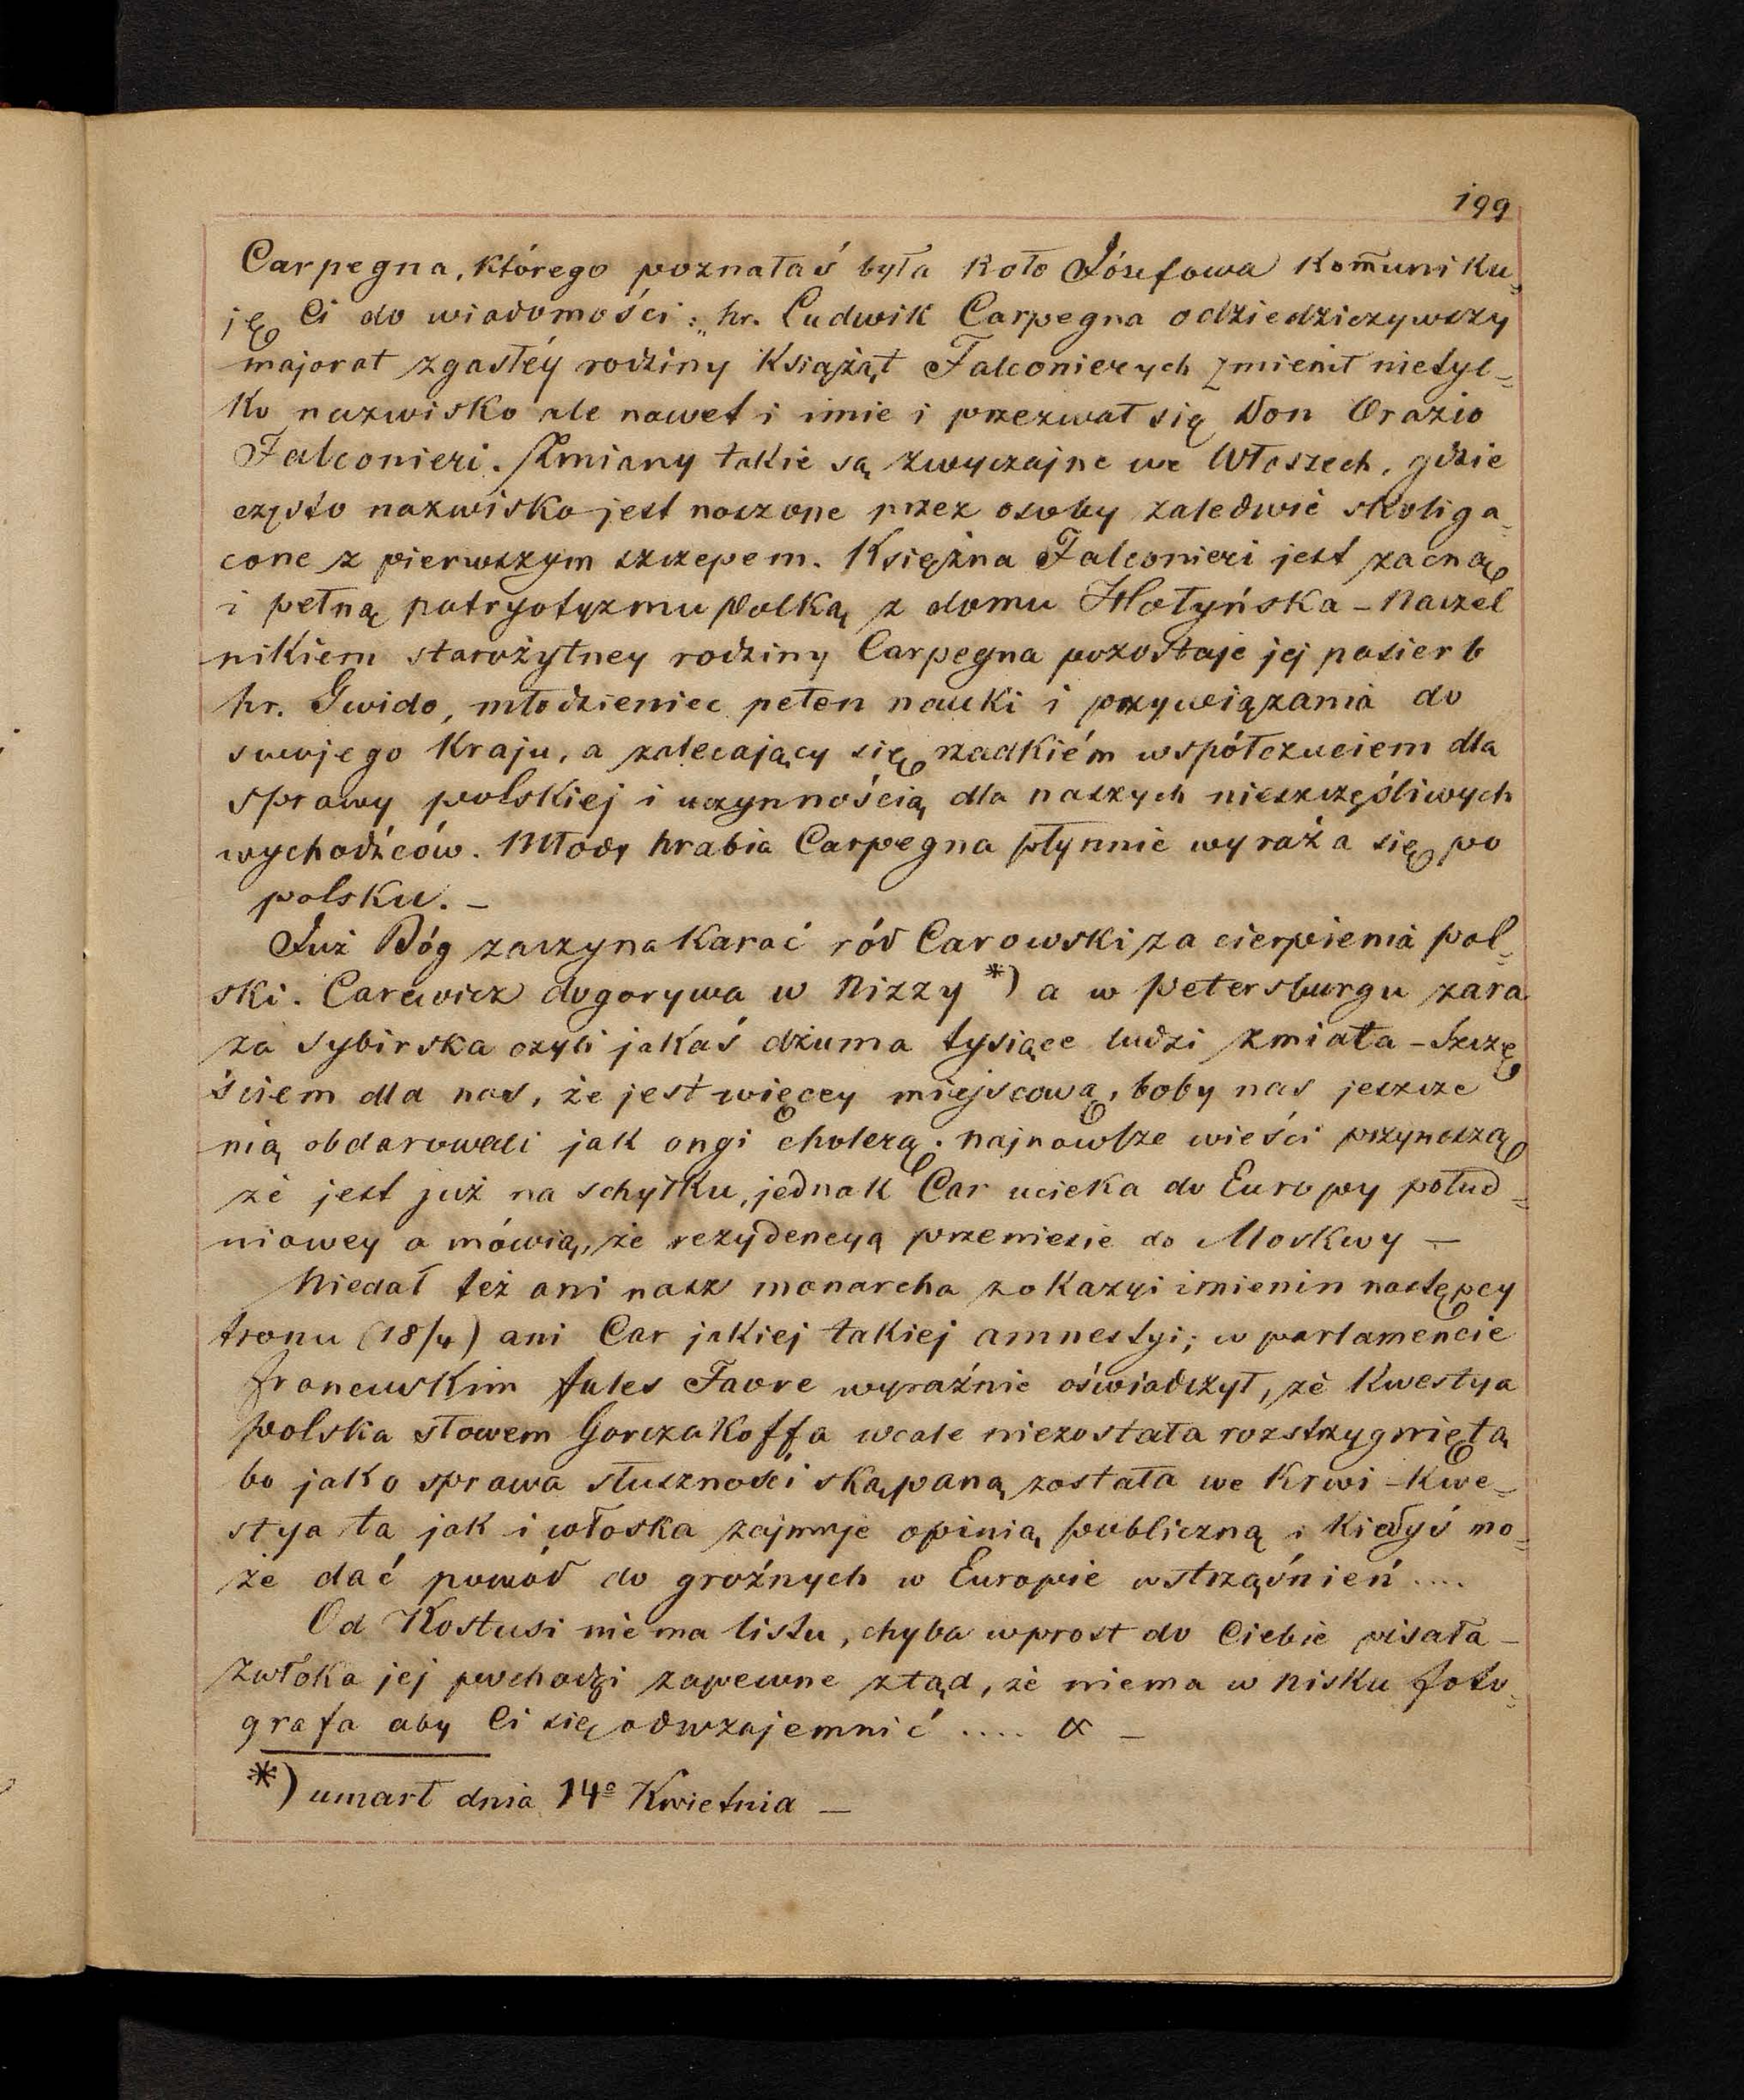 199
Carpegna, którego poznałaś była koło Józefowa kom̄uniku„
ję Ci do wiadomości: „hr. Ludwik Carpegna odziedziczywszy
majorat zgasłéy rodziny Książąt Falconierych zmienił nietyl=
ko nazwisko ale nawet i imie i przezwał się Don Orazio
Falconieri. Zmiany takie są zwyczajne we Włoszech, gdzie
często nazwisko jest noszone przez osoby zaledwie skoliga=
cone z pierwszym szczepem. Księżna Falconieri jest zacną
i pełną patryotyzmu Polką z domu Hołyńska – Naczel
nikiem starożytney rodziny Carpegna pozostaje jej pasierb
hr. Gwido, młodzieniec pełen nauki i przywiązania do
swojego kraju, a zalecający się rzadkiém współczuciem dla
sprawy polskiej i uczynnością dla naszych nieszczęśliwych
wychodźców. Młody hrabia Carpegna płynnie wyraża się po
polsku. –
Już Bóg zaczyna karać ród Carowski za cierpienia Pol=
ski. Carewicz dogorywa w Nizzy *) a w Petersburgu zara
za sybirska czyli jakaś dżuma tysiące ludzi zmiata – Szczę
ściem dla nas, że jest więcey miejscową, boby nas jeszcze
nią obdarowali jak ongi cholerą. Najnowsze wieści przynoszą
że jest już na schyłku, jednak Car ucieka do Europy połud=
niowey a mówią, że rezydencyą przeniesie do Moskwy –
Niedał też ani nasz monarcha z okazyi imienin następcy
tronu (18/4) ani Car jakiej takiej amnestyi; w parlamencie
francuskim Jules Favre wyraźnie oświadczył, że kwestya
polska słowem Gorczakoffa wcale niezostała rozstrzygnięta
bo jako sprawa słuszności skąpaną została we krwi – Kwe=
stya ta jak i włoska zajmuje opinią publiczną i kiedyś mo=
że dać powód do groźnych w Europie wstrząśnień ....
Od Kostusi niema listu, chyba wprost do Ciebie pisała –
Zwłoka jej pochodzi zapewne ztąd, że niema w Nisku foto=
grafa aby Ci się odwzajemnić ....
*) umarł dnia 14º Kwietnia –